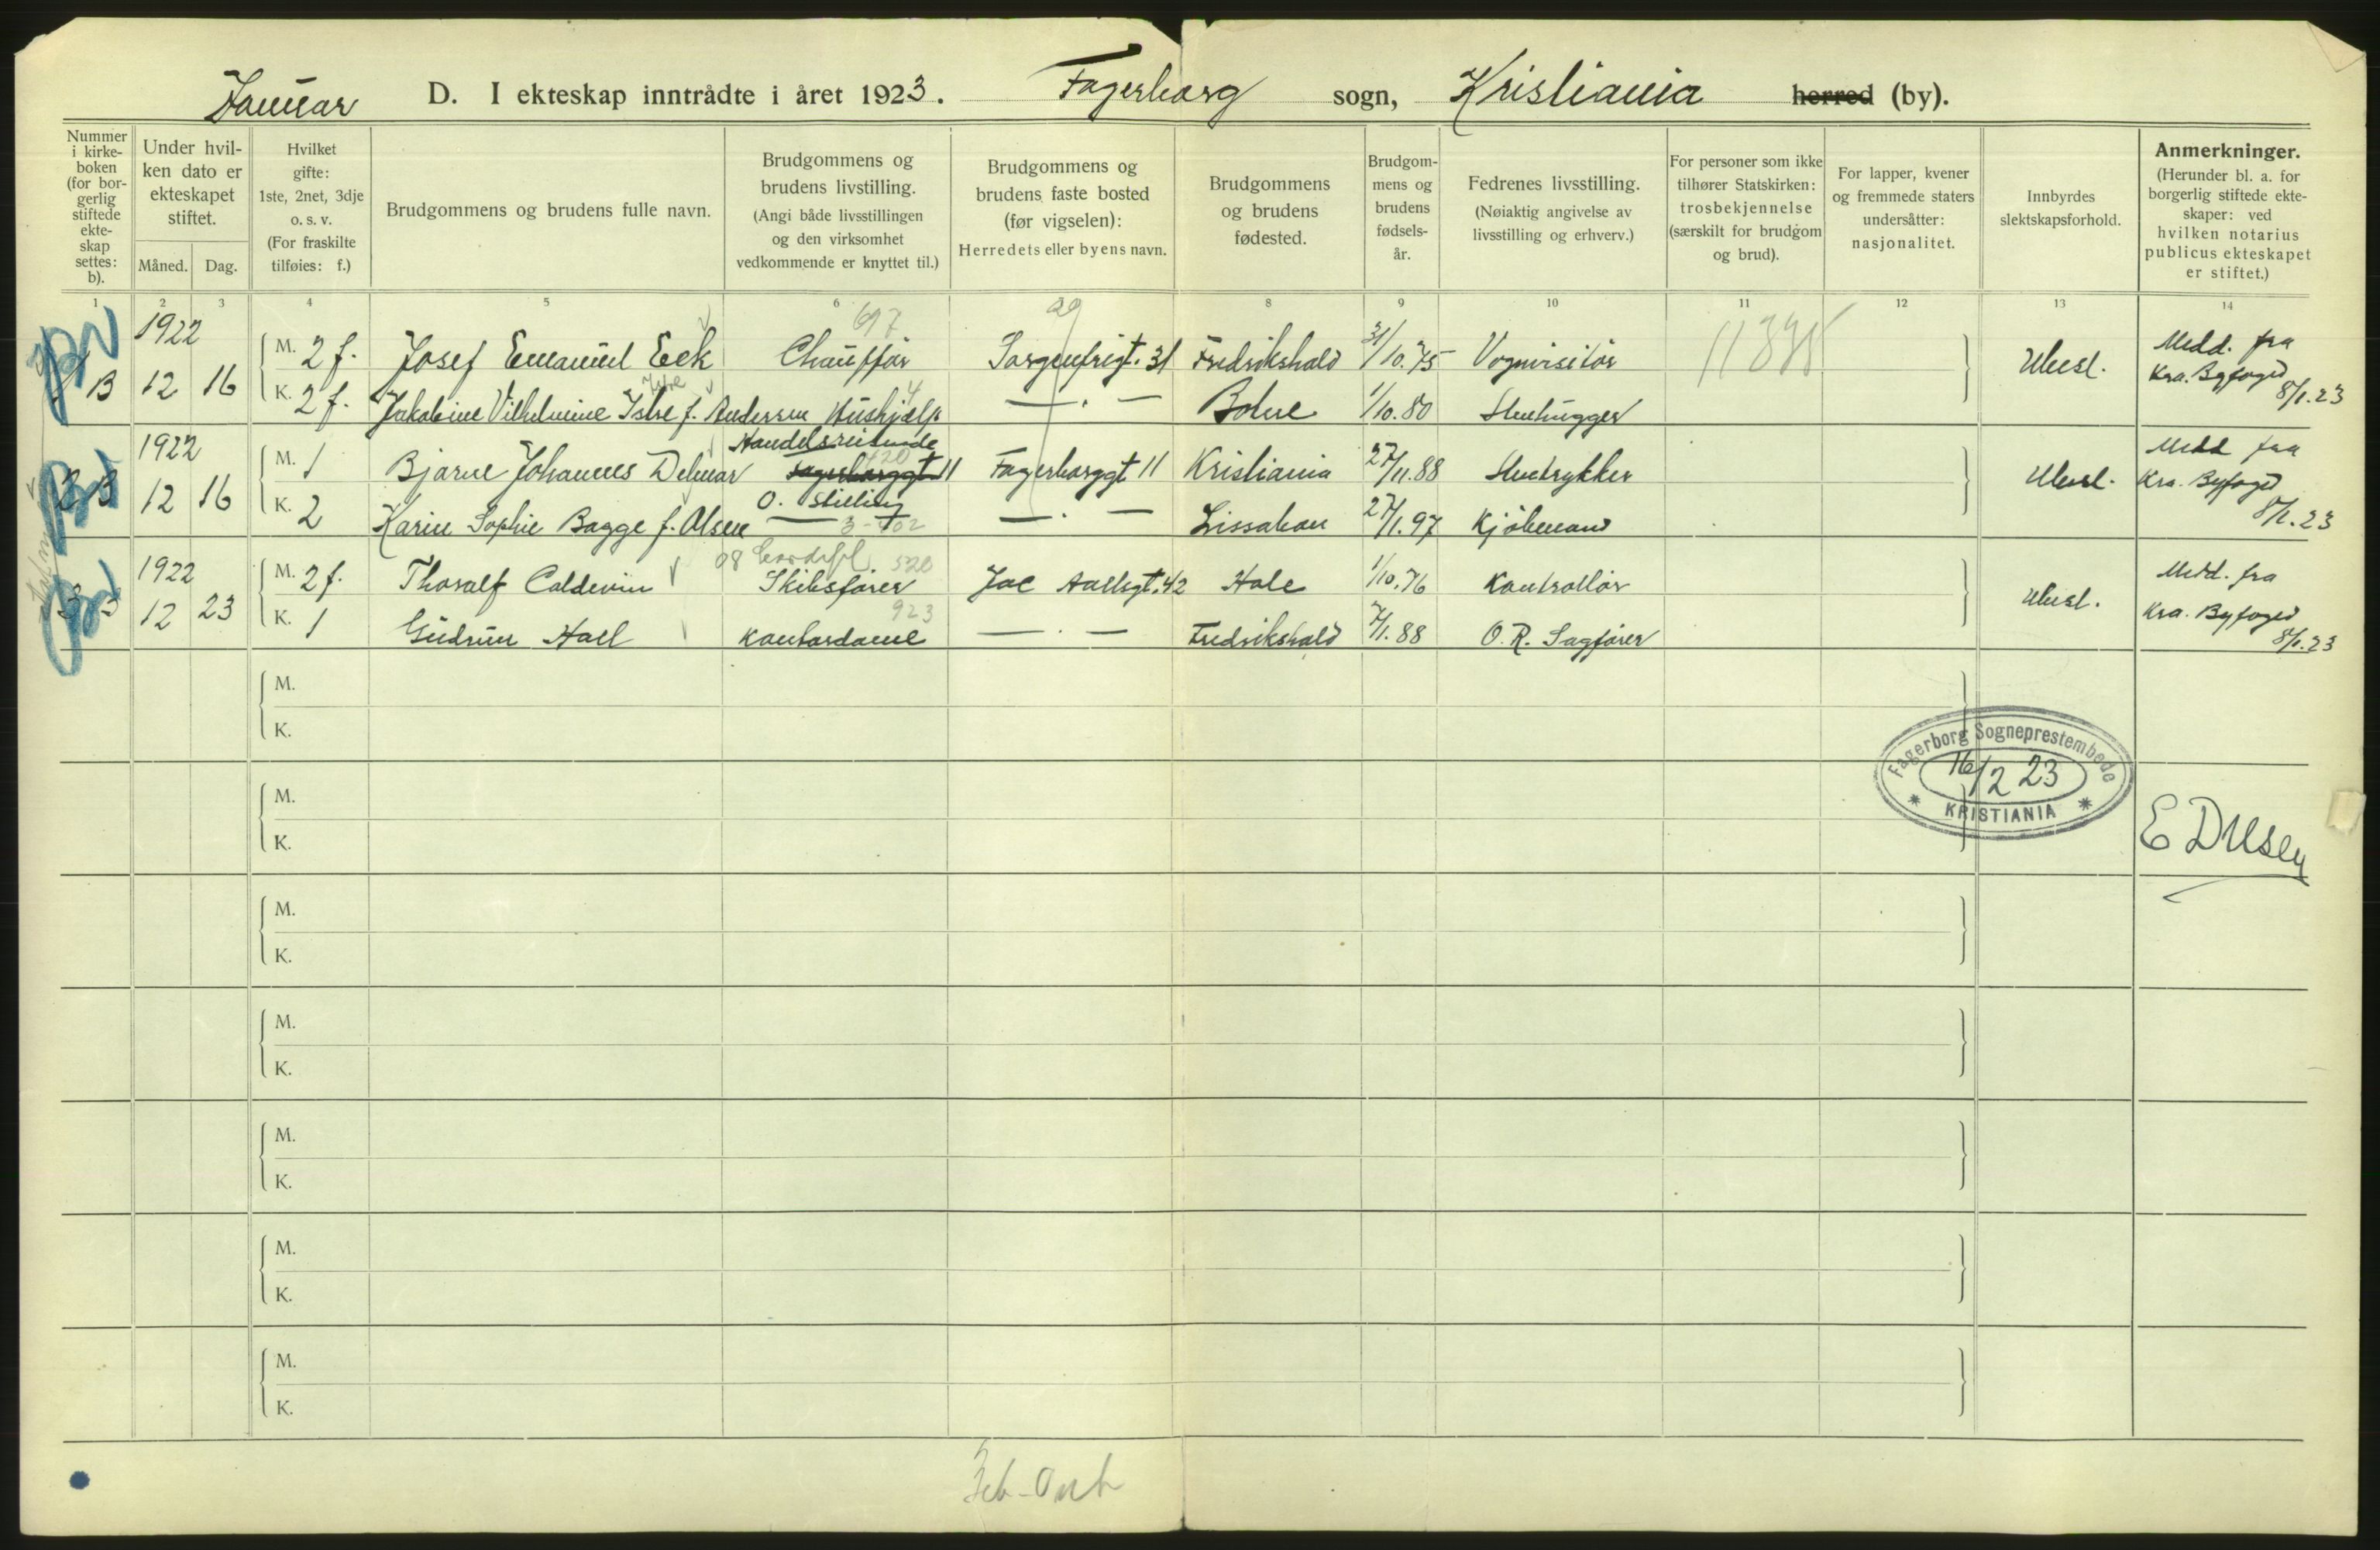 Januar D. I ekteskap inntrådte i året 1923. Fagerborg sogn, Kristiania herred (by).
Nummer i kirke-boken (for bor-gerlig stiftede ekte-skap settes: b).
Under hvil-ken dato er ekteskapet stiftet.
Måned. Dag.
Hvilket gifte: 1ste, 2net, 3dje o. s. v. (For fraskilte tilføies: f.)
Brudgommens og brudens fulle navn.
Brudgommens og brudens livstilling. (Angi både livsstillingen og den virksomhet vedkommende er knyttet til.)
Brudgommens og brudens faste bosted (før vigselen): Herredets eller byens navn.
Brudgommens og brudens fødested.
Brudgom-mens og brudens fødsels-år.
Fedrenes livsstilling. (Nøiaktig angivelse av livsstilling og erhverv.)
For personer som ikke tilhører Statskirken: trosbekjennelse (særskilt for brudgom og brud).
For lapper, kvener og fremmede staters undersåtter: nasjonalitet.
Innbyrdes slektskapsforhold.
Anmerkninger. (Herunder bl. a. for borgerlig stiftede ekte-skaper: ved hvilken notarius publicus ekteskapet er stiftet.)
1 2 3 4 5 6 8 9 10 11 12 13 14
1922 697 29
M. 2 f. Josef Emanuel Eek Chauffør Sorgenfrigt. 31 Fredrikshald 31/10.75 Vognvisitør Medd. fra
B 12 16 Ubesl. Kra. Byfoged 8/1.23
K. 2 f. Jakobine Vilhelmine Istre f. Andersen Hushjælp — . — Bohne 1/10.80 Stenhugger
1922 Handelsreisende
M. 1 Bjarne Johannes Delmar Fagerborggt 11 Fagerborggt 11 Kristiania 27/11.88 Stentrykker Medd fra
B 12 16 O. Stilling Ubesl. Kra. Byfoged 8/1.23
K. 2 Karin Sophie Bagge f. Olsen — 3-402 — . — Lissabon 27/1.97 Kjøbmand
1922 08 520
M. 2 f. Thoralf Coldevin Skibsfører Jac Aallsgt. 42 Hole 1/10.76 Kontrollør Medd. fra
3 B 12 23 923 Ubesl. Kra. Byfoged 8/1.23
K. 1 Gudrun Hall Kontordame — . — Fredrikshald 7/1.88 O. R. Sagfører
M.
K.
Fagerborg Sogneprestembede
16/2 23
* KRISTIANIA *
M.
K.
M.
K.
M.
K.
M.
K.
M.
K.
M.
K.